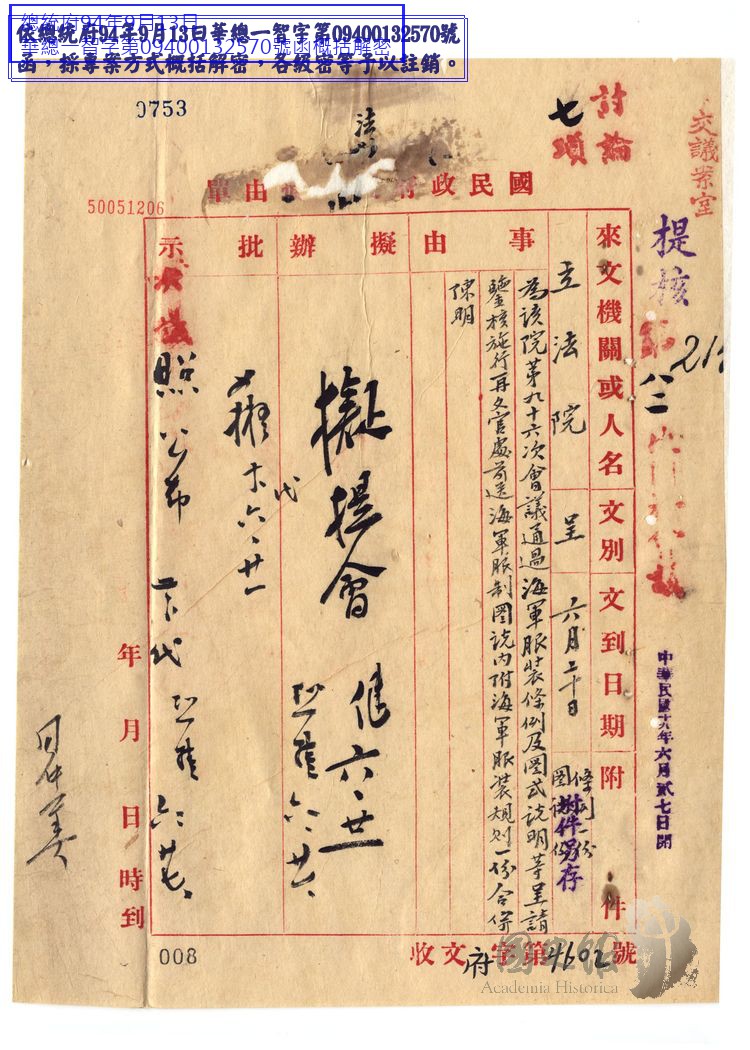 總統府94年9月13日
華總一智字第09400132570號函概括解密
依總統府94年9月13日華總一智字第09400132570號
函，採專案方式概括解密，各級密等予以註銷。
0753
50051206
討論
七項
交議案室
提核
國民政府
由單
來文機關或人名
文別
文到日期
附件
事由
擬辦
批示
立法院
呈
六月二十日
條例一份
圖說一份
附件另存
為該院第九十六次會議通過海軍服裝條例及圖式說明等呈請
鑒核施行再文官處前送海軍服制圖說內附海軍服裝規則一份合併
陳明
擬提會
六、廿一
代
六、廿一
照公布
六、廿六
六、廿七
中華民國十八年六月貳七日開
年月日時到
收文府字第4602號
008
國史館
Academia Historica